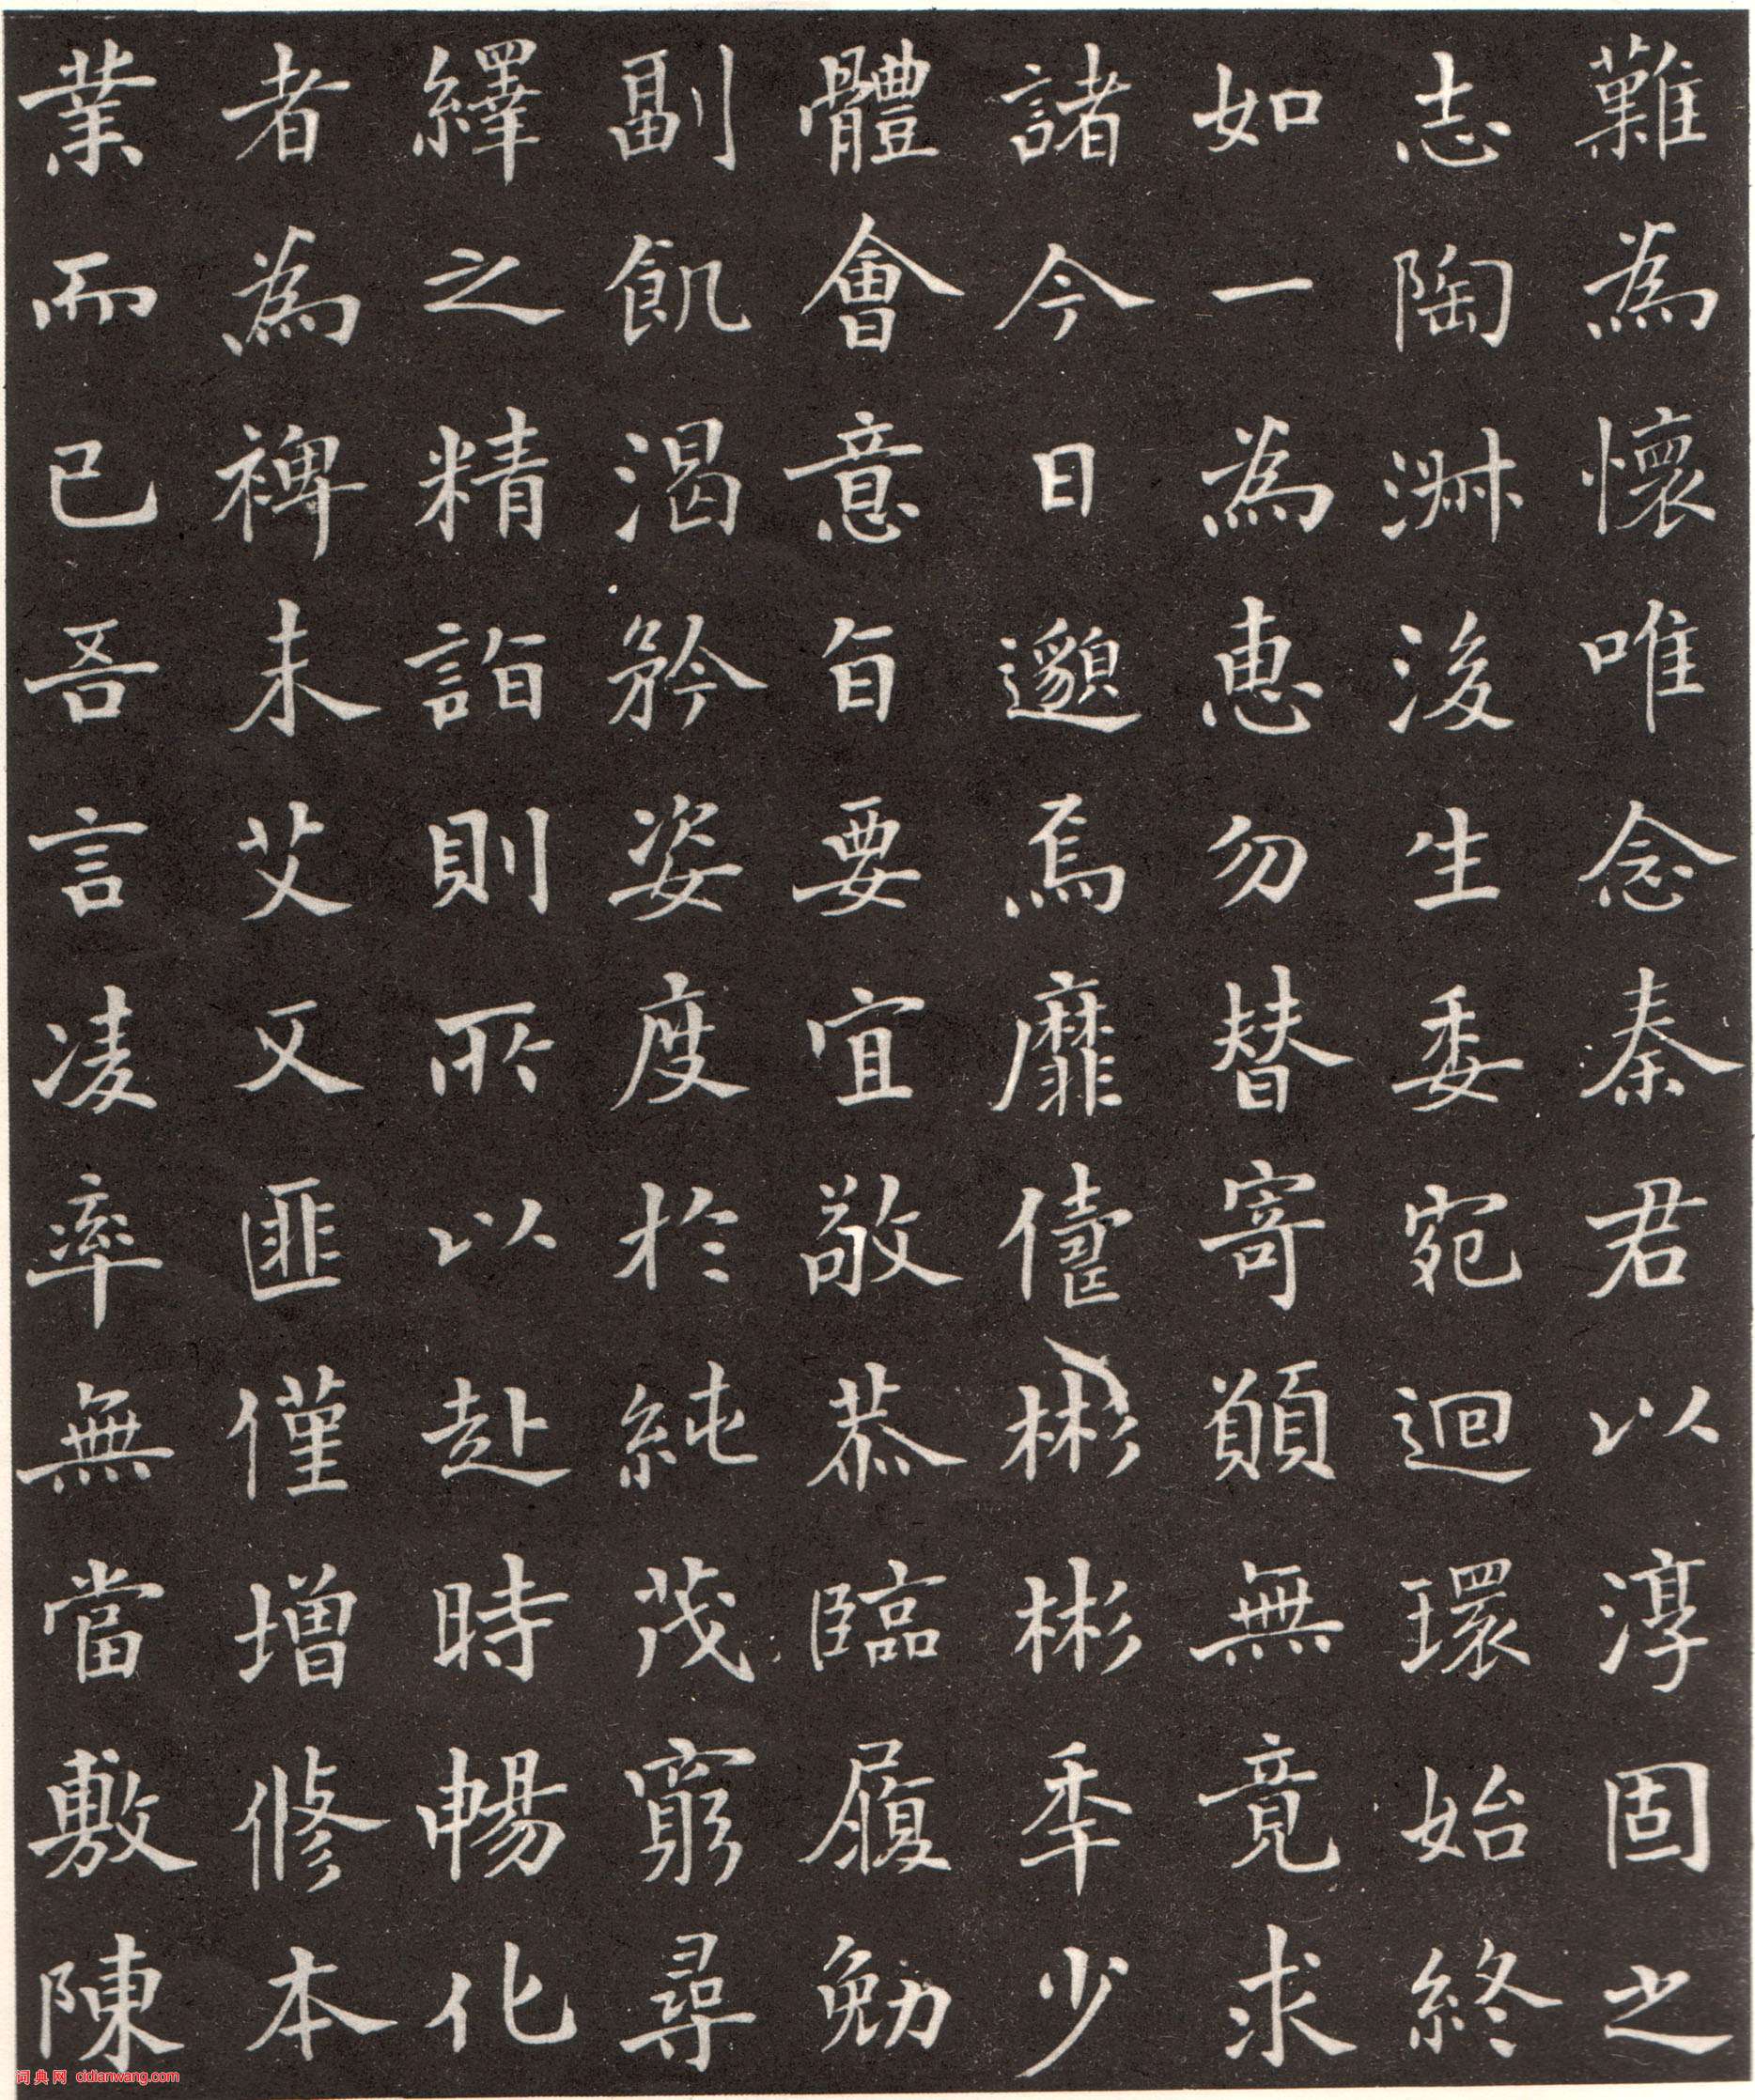 難為懷唯念秦君以淳固之
志陶淋浚生委宛迴環始終
如一為惠勿替寄頠無竟求
諸今日邈焉靡儔彬彬季少
體會意旨要宜敬恭臨履勉
副飢渴矜姿度於純茂窮尋
繹之精詣則所以赴時暢化
者為裨未艾又匪僅增修本
業而已吾言凌率無當敷陳
词典网 cidianwang.com